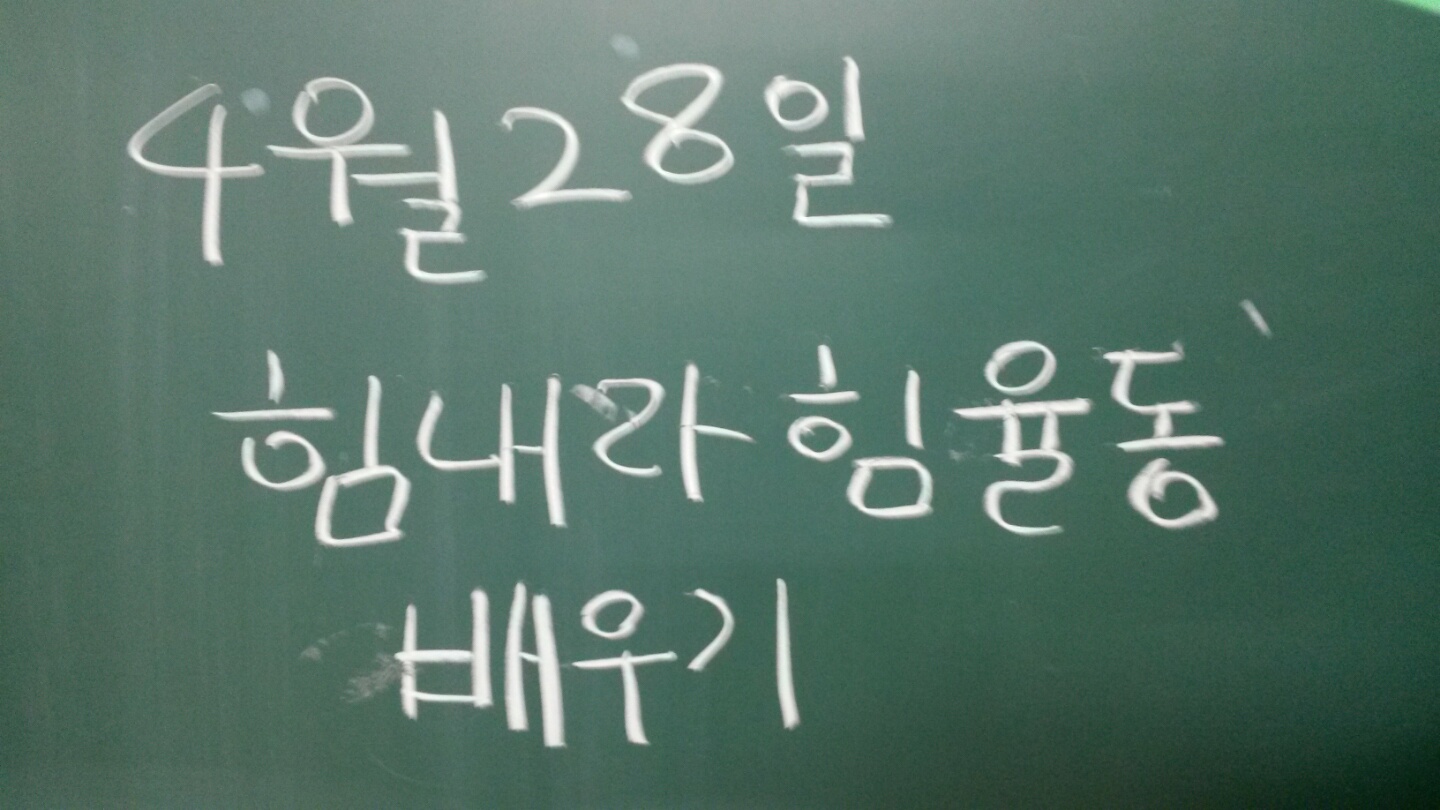 4월 28일
힘내라 힘 율동
배우기